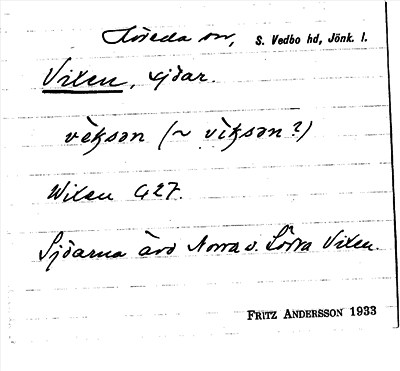 Höreda sn, S. Vedbo hd, Jönk. l.
Vixen, sjöar.
vèksən (~ vìksən?)
Wixen G27.
Sjöarna äro Norra o. Södra Vixen.
FRITZ ANDERSSON 1933